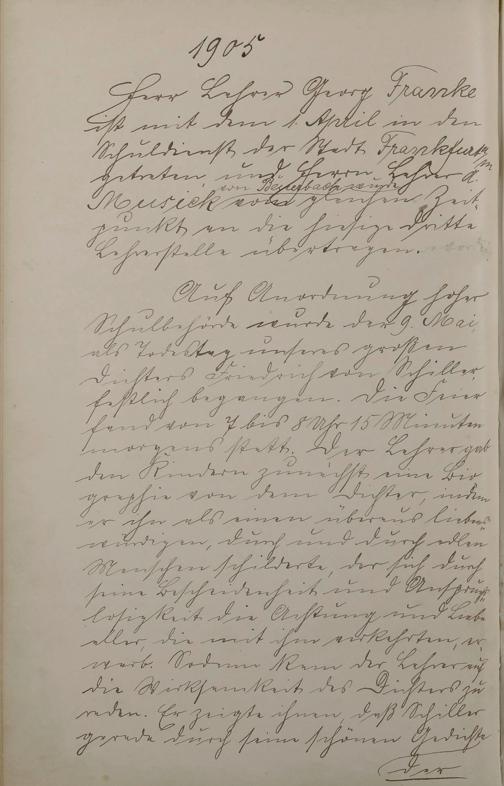 1905
Herr Lehrer Georg Franke
ist mit dem 1. April in den
Schuldienst der Stadt Frankfurt a/M
getreten, und Herrn Lehrer A.
Musick von Beuerbach wurde vom gleichen Zeit-
punkt an die hiesige dritte
Lehrerstelle übertragen.
Auf Anordnung hoher
Schulbehörde wurde der 9. Mai,
als Todestag unseres großen
Dichters Friedrich von Schiller
festlich begangen. Die Feier
fand von 7 bis 8 Uhr 15 Minuten
morgens statt. Der Lehrer gab
den Kindern zunächst eine Bio
graphie von dem Dichter, indem
er ihn als einen überaus liebens
würdigen, durch und durch edlen
Menschen schilderte, der sich durch
seine Bescheidenheit und Anspruchs
losigkeit die Achtung und Liebe
aller, die mit ihm verkehrten, er,
warb. Sodann kam der Lehrer auf
die Wirksamkeit des Dichters zu
reden. Er zeigte ihnen, daß Schiller
gerade durch seine schönen Gedichte
der